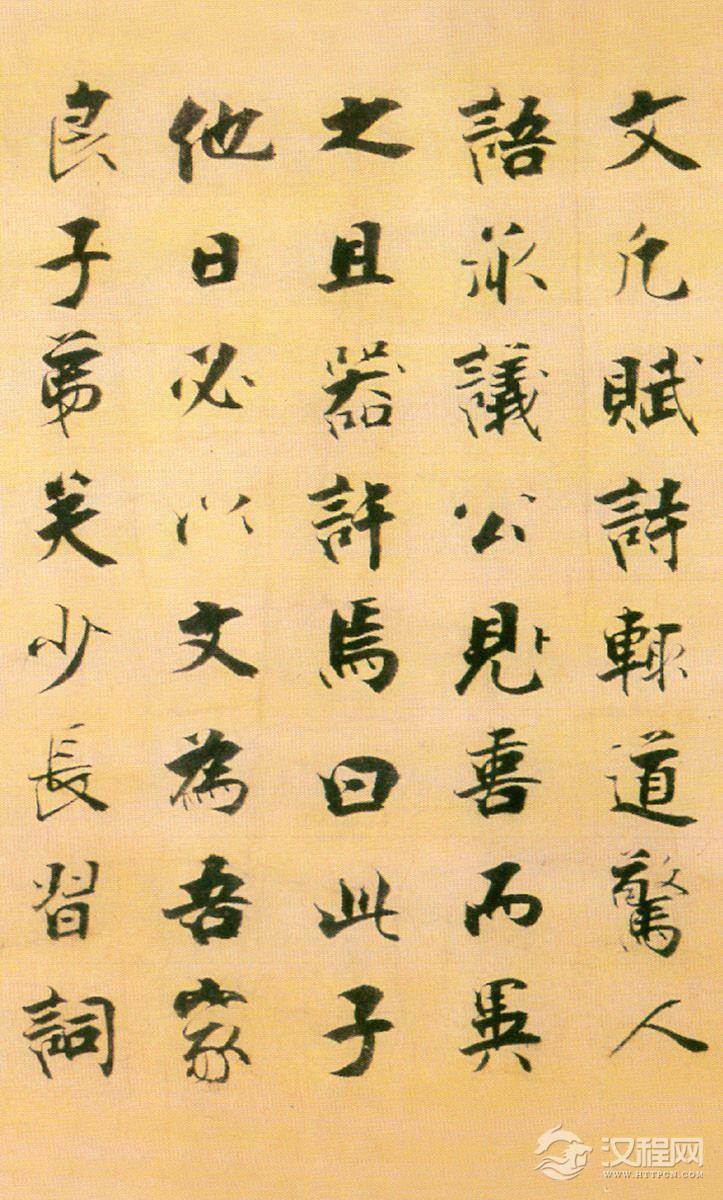 文凡賦詩輒道驚人
語承議公見喜而異
之且器許焉曰此子
他日必以文為吾家
良子弟矣少長習詞
汉程网
WWW.HTTPCN.COM